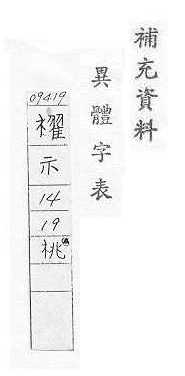 補充資料
異體字表
09419
示
14
19
祧